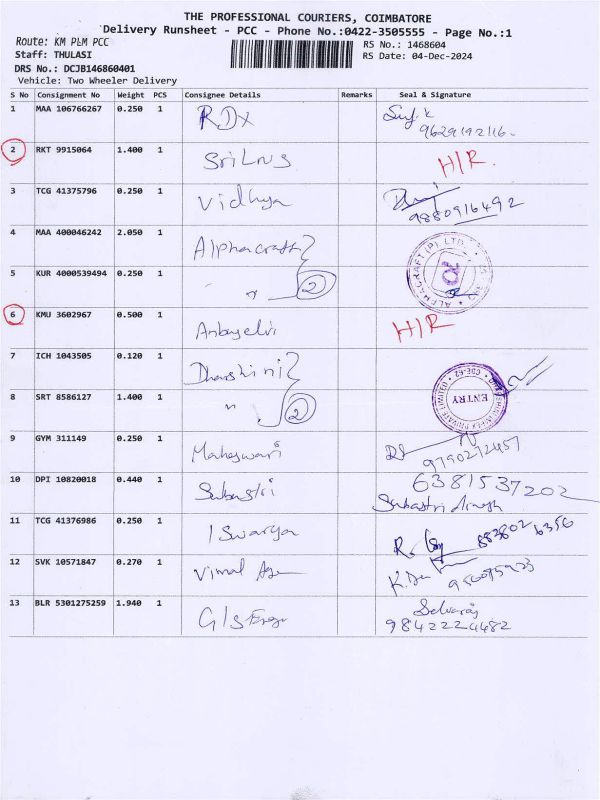 THE PROFESSIONAL COURIERS, COIMBATORE
Delivery Runsheet - PCC - Phone No.:0422-3505555 - Page No.:1
Route: KM PLM PCC
RS No.: 1468604
Staff: THULASI
RS Date: 04-Dec-2024
DRS No.: DCJB146860401
Vehicle: Two Wheeler Delivery
S No Consignment No Weight PCS Consignee Details Remarks Seal & Signature
1 MAA 106766267 0.250 1 RDX
9629192116.
2 RKT 9915064 1.400 1 H/R.
3 TCG 41375796 0.250 1 Vidhya
9880916492
4 MAA 400046242 2.050 1 Alphacraft
ALPHACRAFT (P) LTD.
5 KUR 4000539494 0.250 1 " 2
6 KMU 3602967 0.500 1 Anbuselvi H/R
7 ICH 1043505 0.120 1 Dharshini
ENTRY
8 SRT 8586127 1.400 1 " 2
9 GYM 311149 0.250 1 Maheswari
9790272457
10 DPI 10820018 0.440 1 Sabastri 6381537202
Sabastri
11 TCG 41376986 0.250 1 Iswarya 883802 6356
12 SVK 10571847 0.270 1 Vimal
13 BLR 5301275259 1.940 1 Selvaraj
9842224482